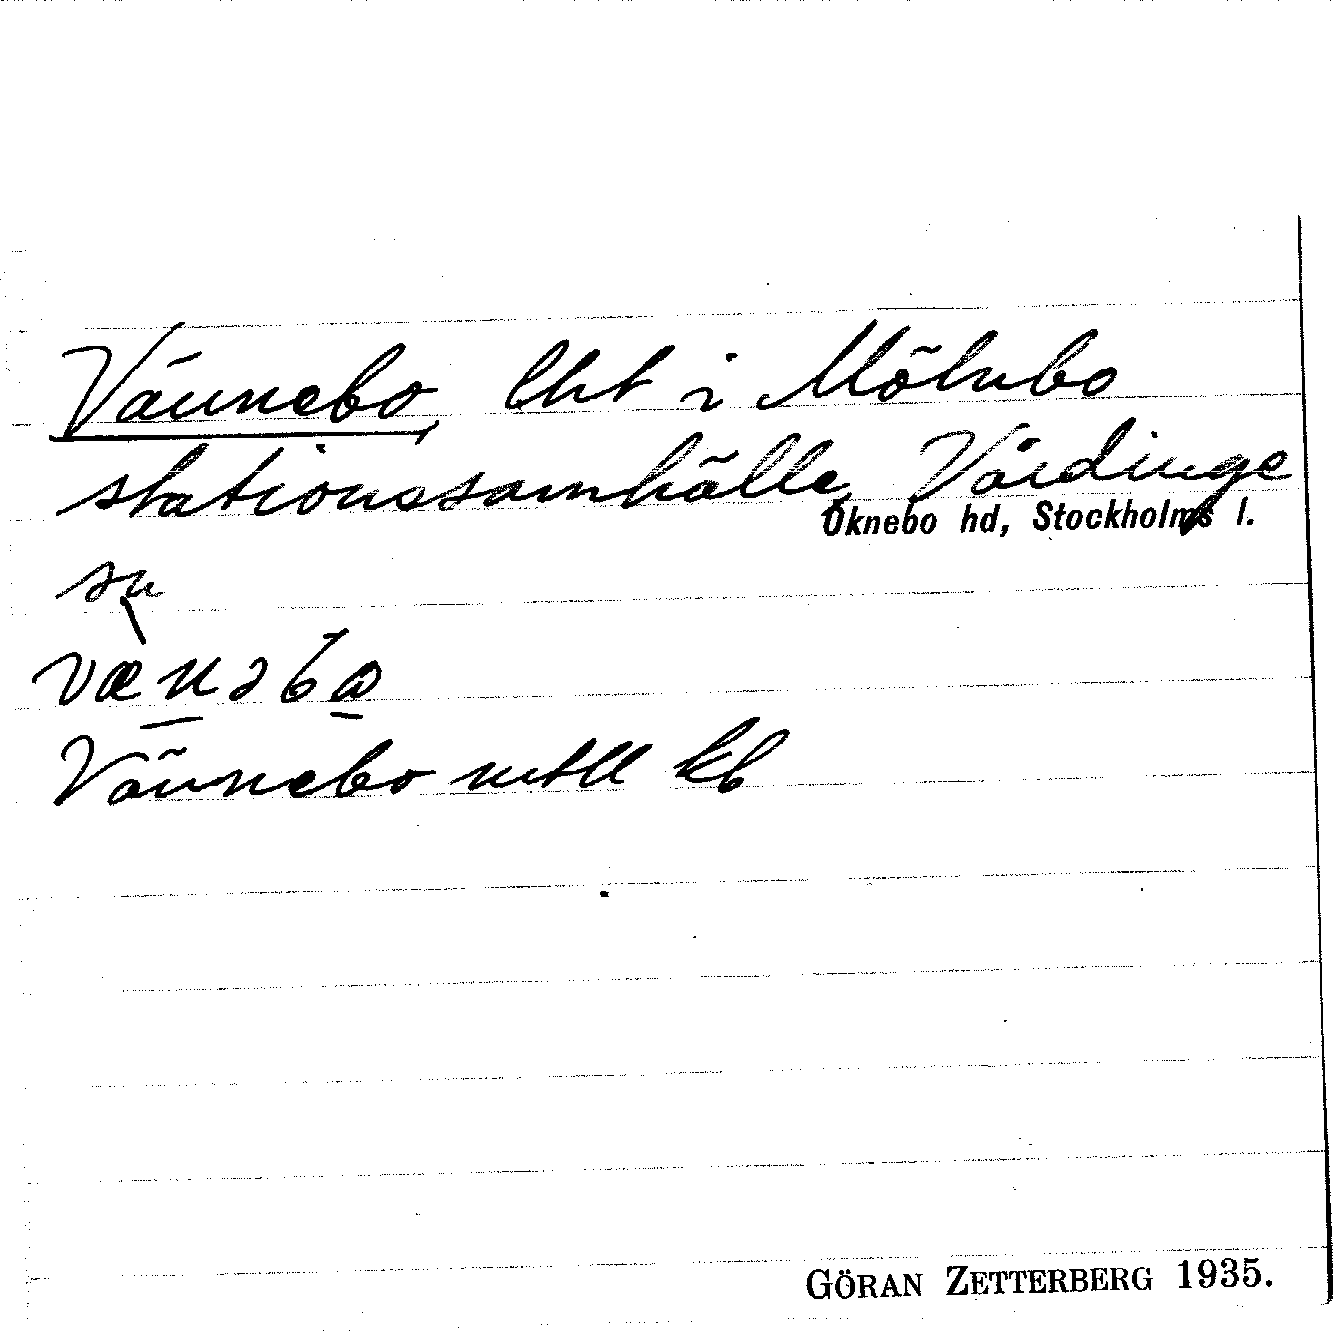 Vännebo, lht i Mölnbo
stationssamhälle, Vårdinge
Öknebo hd, Stockholms l.
sn
vænəbω
Vännebo mtll kb
GÖRAN ZETTERBERG 1935.